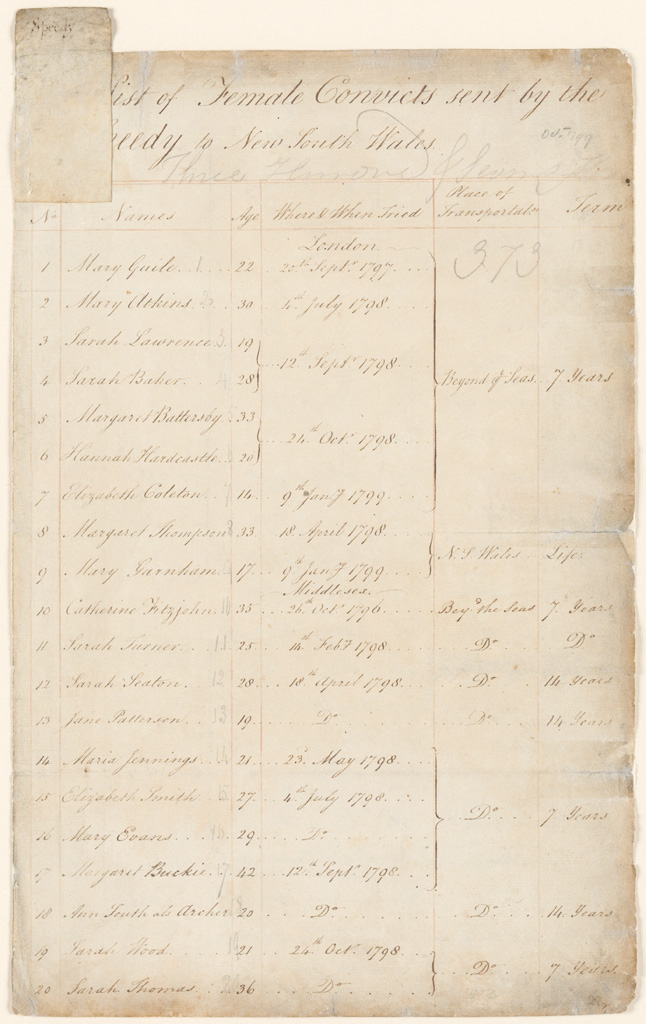 Speedy
List of Female Convicts sent by the
peedy to New South Wales
Octr 1799
Three
No Names Age Where & When Tried Place of Transportatn Term
373
London
1 Mary Guile 1 22 20th Septr 1797
2 Mary Atkins 2 30 4th July 1798
3 Sarah Lawrence 3 19
12th Septr 1798
4 Sarah Baker 4 28 Beyond ye Seas 7 Years
5 Margaret Battersby 33
24th Octr 1798
6 Hannah Hardcastle 20
7 Elizabeth Coleton 7 14 9th Jany 1799
8 Margaret Thompson 8 33 18 April 1798
N. S. Wales Life
9 Mary Garnham 17 9th Jany 1799
Middlesex
10 Catherine Fitzjohn 10 35 26th Octr 1796 Beyd the Seas 7 Years
11 Sarah Turner 11 25 14th Feby 1798 Do Do
12 Sarah Seaton 12 28 18th April 1798 Do 14 Years
13 Jane Patterson 13 19 Do Do 14 Years
14 Maria Jennings 14 21 23d May 1798
15 Elizabeth Smith 15 27 4th July 1798
Do 7 Years
16 Mary Evans 16 29 Do
17 Margaret Buckie 17 42 12th Septr 1798
18 Ann South als Archer 20 Do Do 14 Years
19 Sarah Wood 19 21 24th Octr 1798
Do 7 Years
20 Sarah Thomas 36 Do